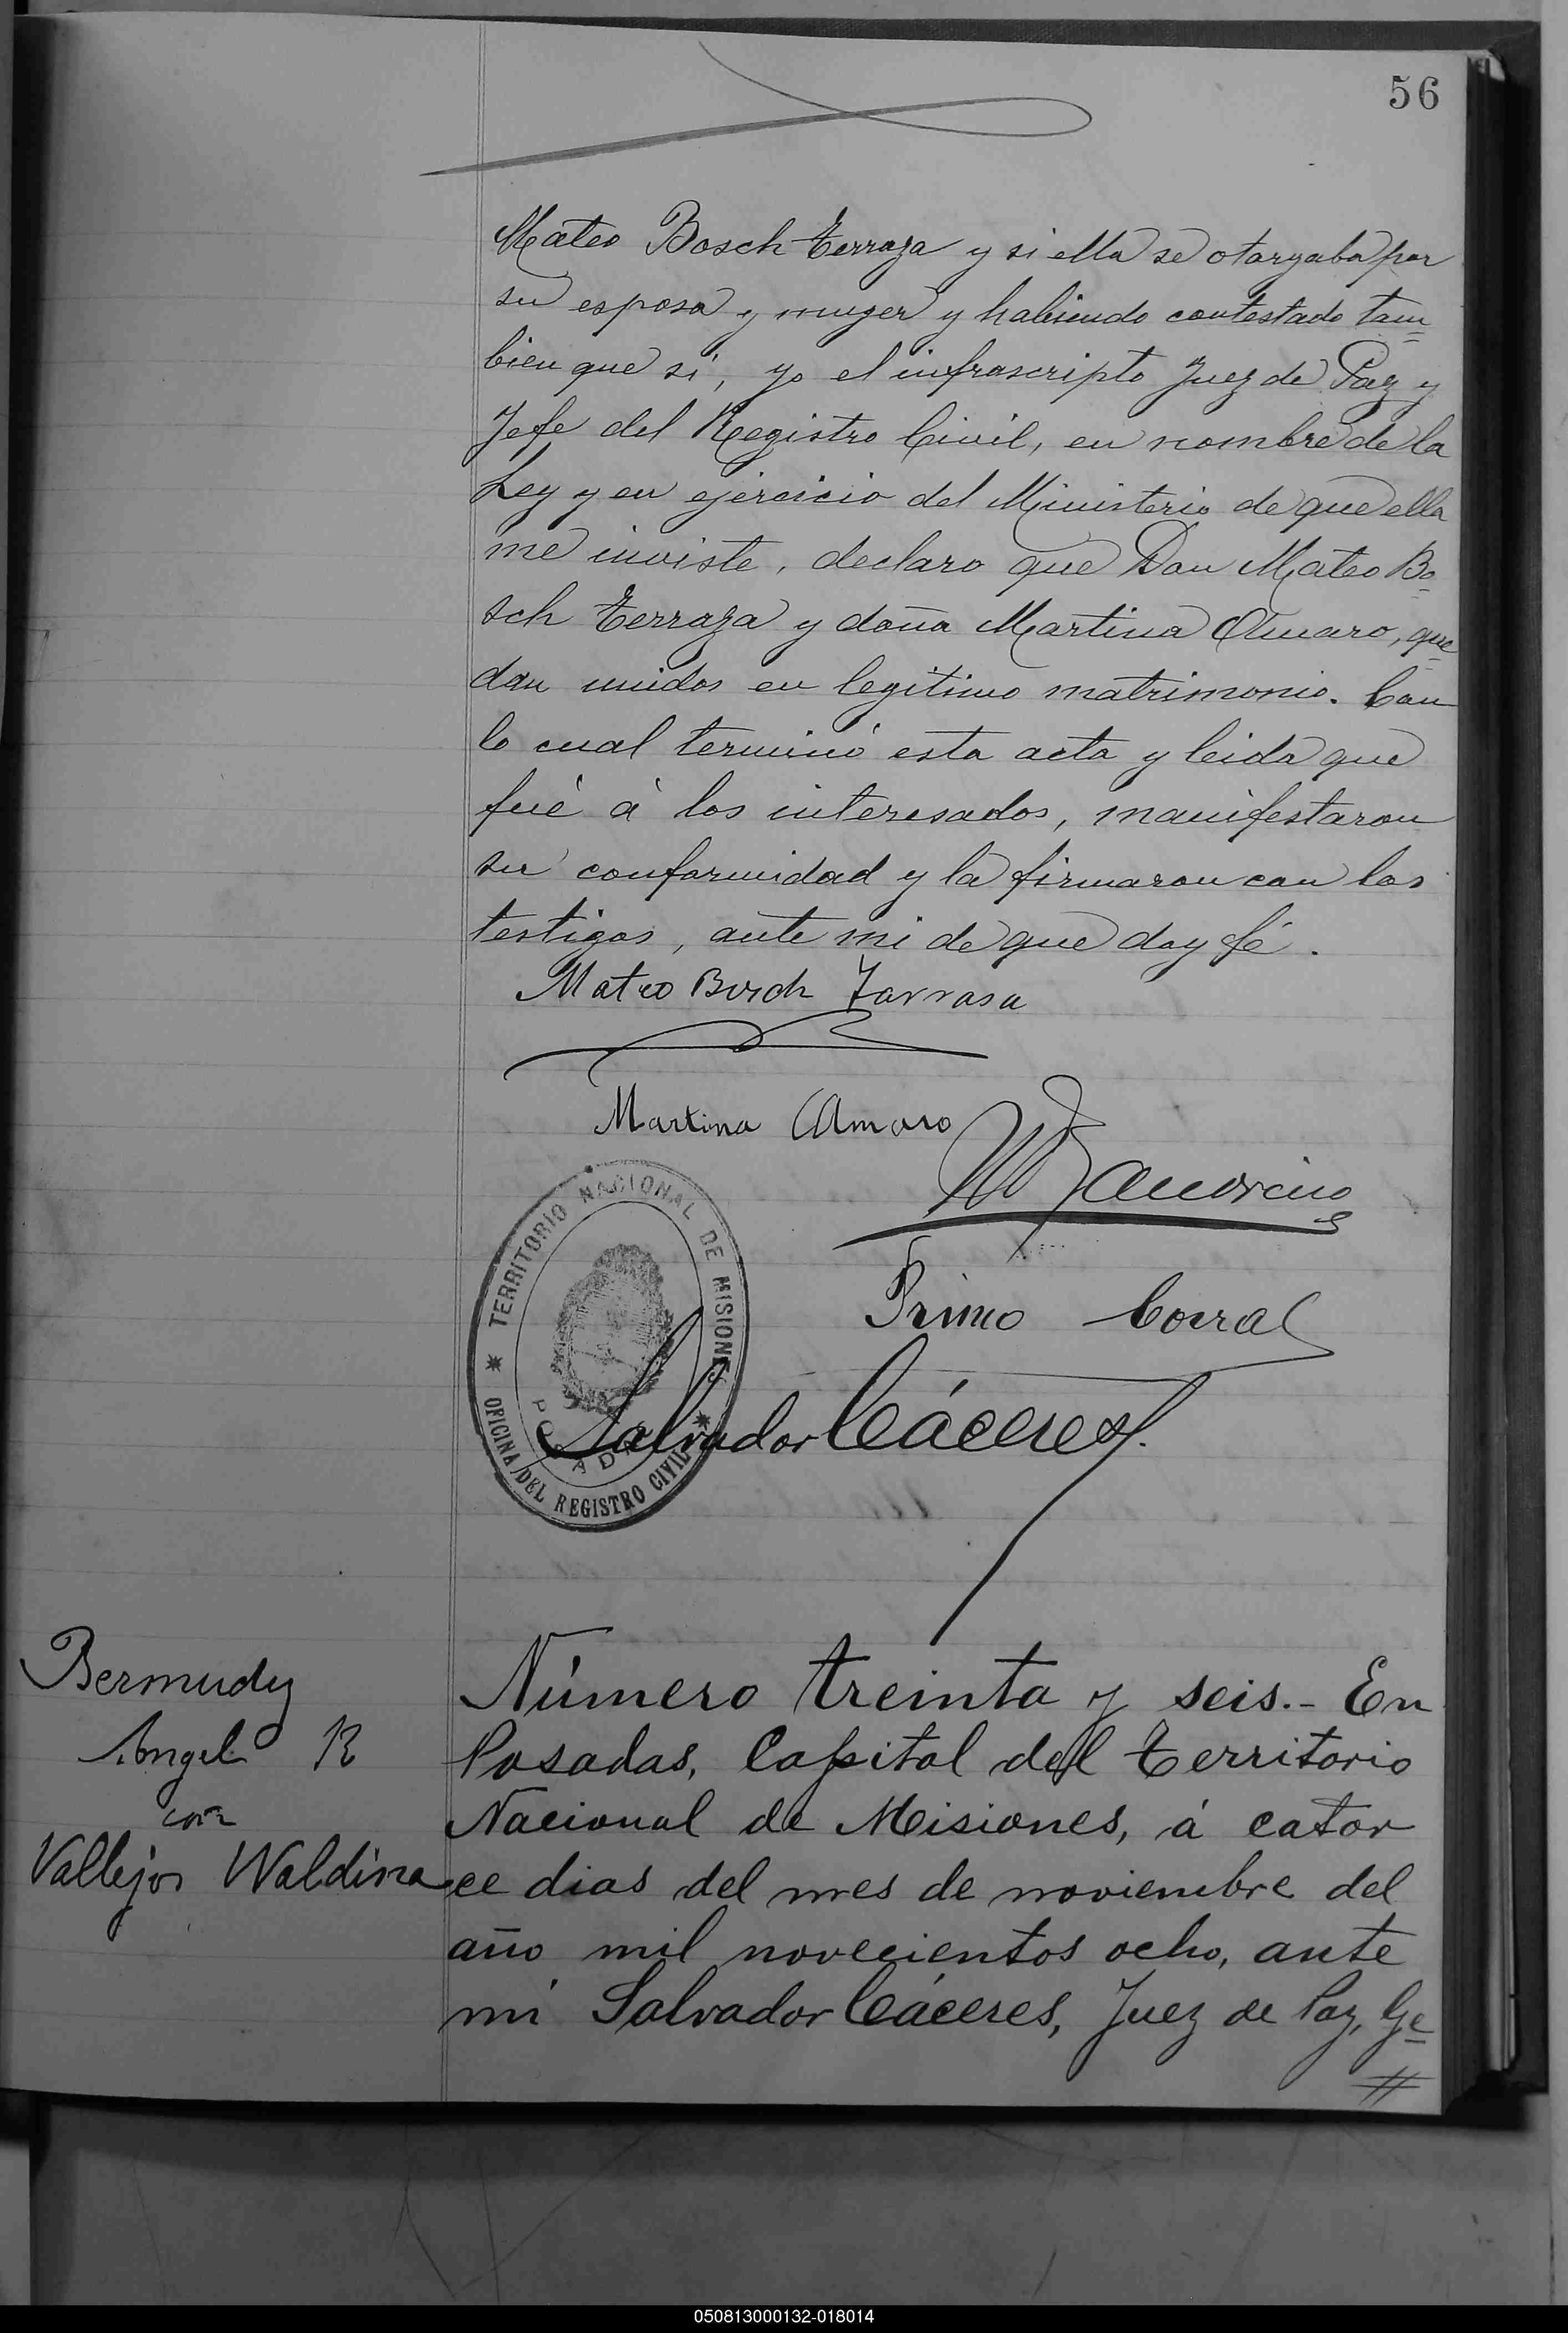 56
Mateo Bosch Terraza y si ella se otorgaba por
su esposa y muger y habiendo contestado tam
bien que si, yo el infrascripto Juez de Paz y
Jefe del Registro Civil, en nombre de la
Ley y en ejercicio del Ministerio de que ella
me inviste, declaro que Don Mateo Bo
sch Terraza y doña Martina Amaro, que
dan unidos en legítimo matrimonio. Con
lo cual terminó esta acta y leida que
fué á los interesados, manifestaron
su conformidad y la firmaron con los
testigos, ante mi de que doy fé.
Mateo Bosch Tarrasa
Martina Amaro
Primo Corral
TERRITORIO NACIONAL DE MISIONES
POSADAS
OFICINA DEL REGISTRO CIVIL
Salvador Cáceres
Bermudez
Angel R
con
Vallejos Waldina
Número treinta y seis.- En
Posadas, Capital del Territorio
Nacional de Misiones, á cator
ce dias del mes de noviembre del
año mil novecientos ocho, ante
mi Salvador Cáceres, Juez de Paz, Ge
050813000132-018014